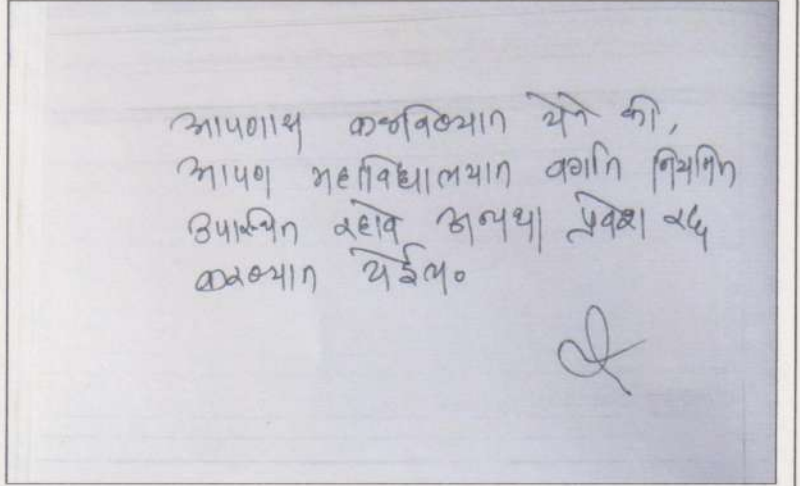 आपणास कळविण्यात येते की,
आपण महाविद्यालयात वर्गात नियमित
उपस्थित रहावे अन्यथा प्रवेश रद्द
करण्यात येईल.